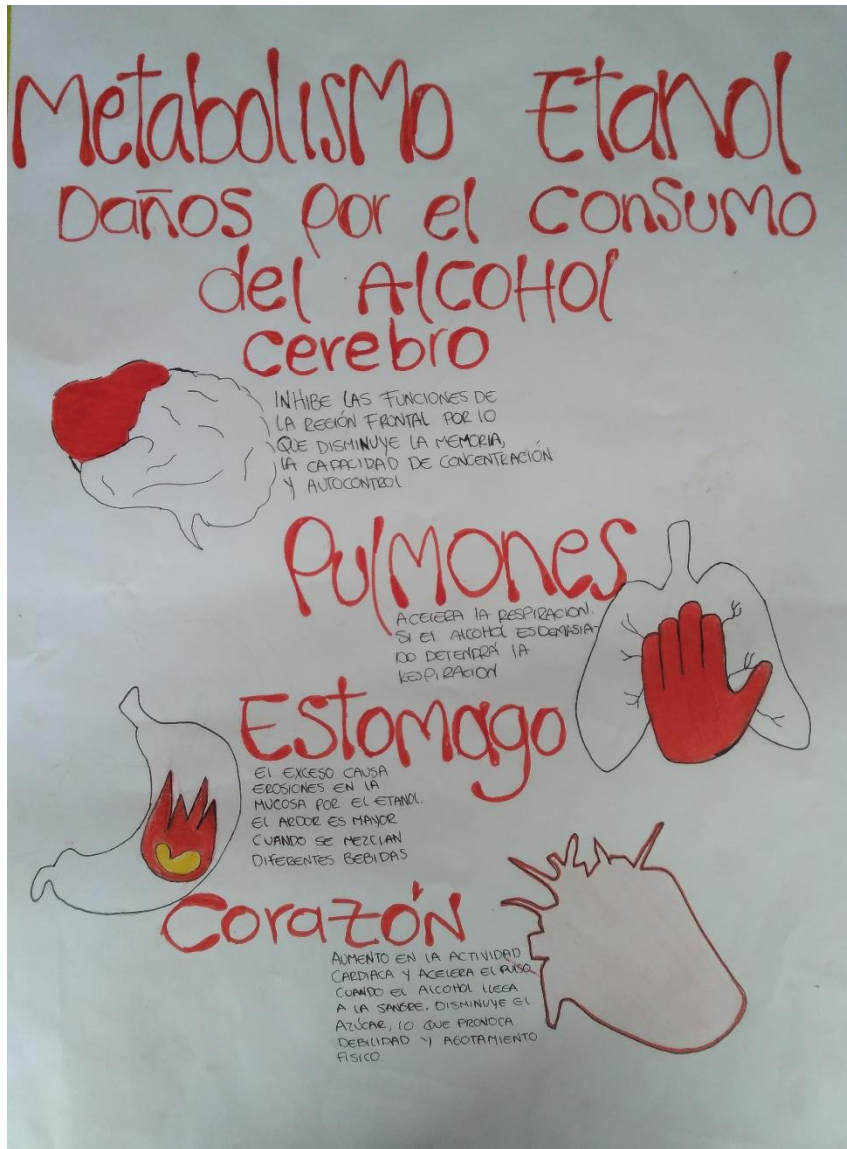 Metabolismo Etanol
Daños por el consumo
del Alcohol
cerebro
INHIBE LAS FUNCIONES DE
LA REGIÓN FRONTAL POR LO
QUE DISMINUYE LA MEMORIA,
LA CAPACIDAD DE CONCENTRACIÓN
Y AUTOCONTROL
Pulmones
ACELERA LA RESPIRACION.
SI El AlCOHOL ES DEMASIA-
DO DETENDRÁ LA
RESPIRACION
Estomago
El EXCESO CAUSA
EROSIONES EN LA
MUCOSA POR EL ETANOL.
EL ARDOR ES MAYOR
CUANDO SE MEZCLAN
DIFERENTES BEBIDAS
Corazón
AUMENTO EN LA ACTIVIDAD
CARDIACA Y ACELERA EL PULSO
CUANDO EL ALCOHOL LLEGA
A LA SANGRE. DISMINUYE El
AZÚCAR, LO QUE PROVOCA
DEBILIDAD Y AGOTAMIENTO
FÍSICO.